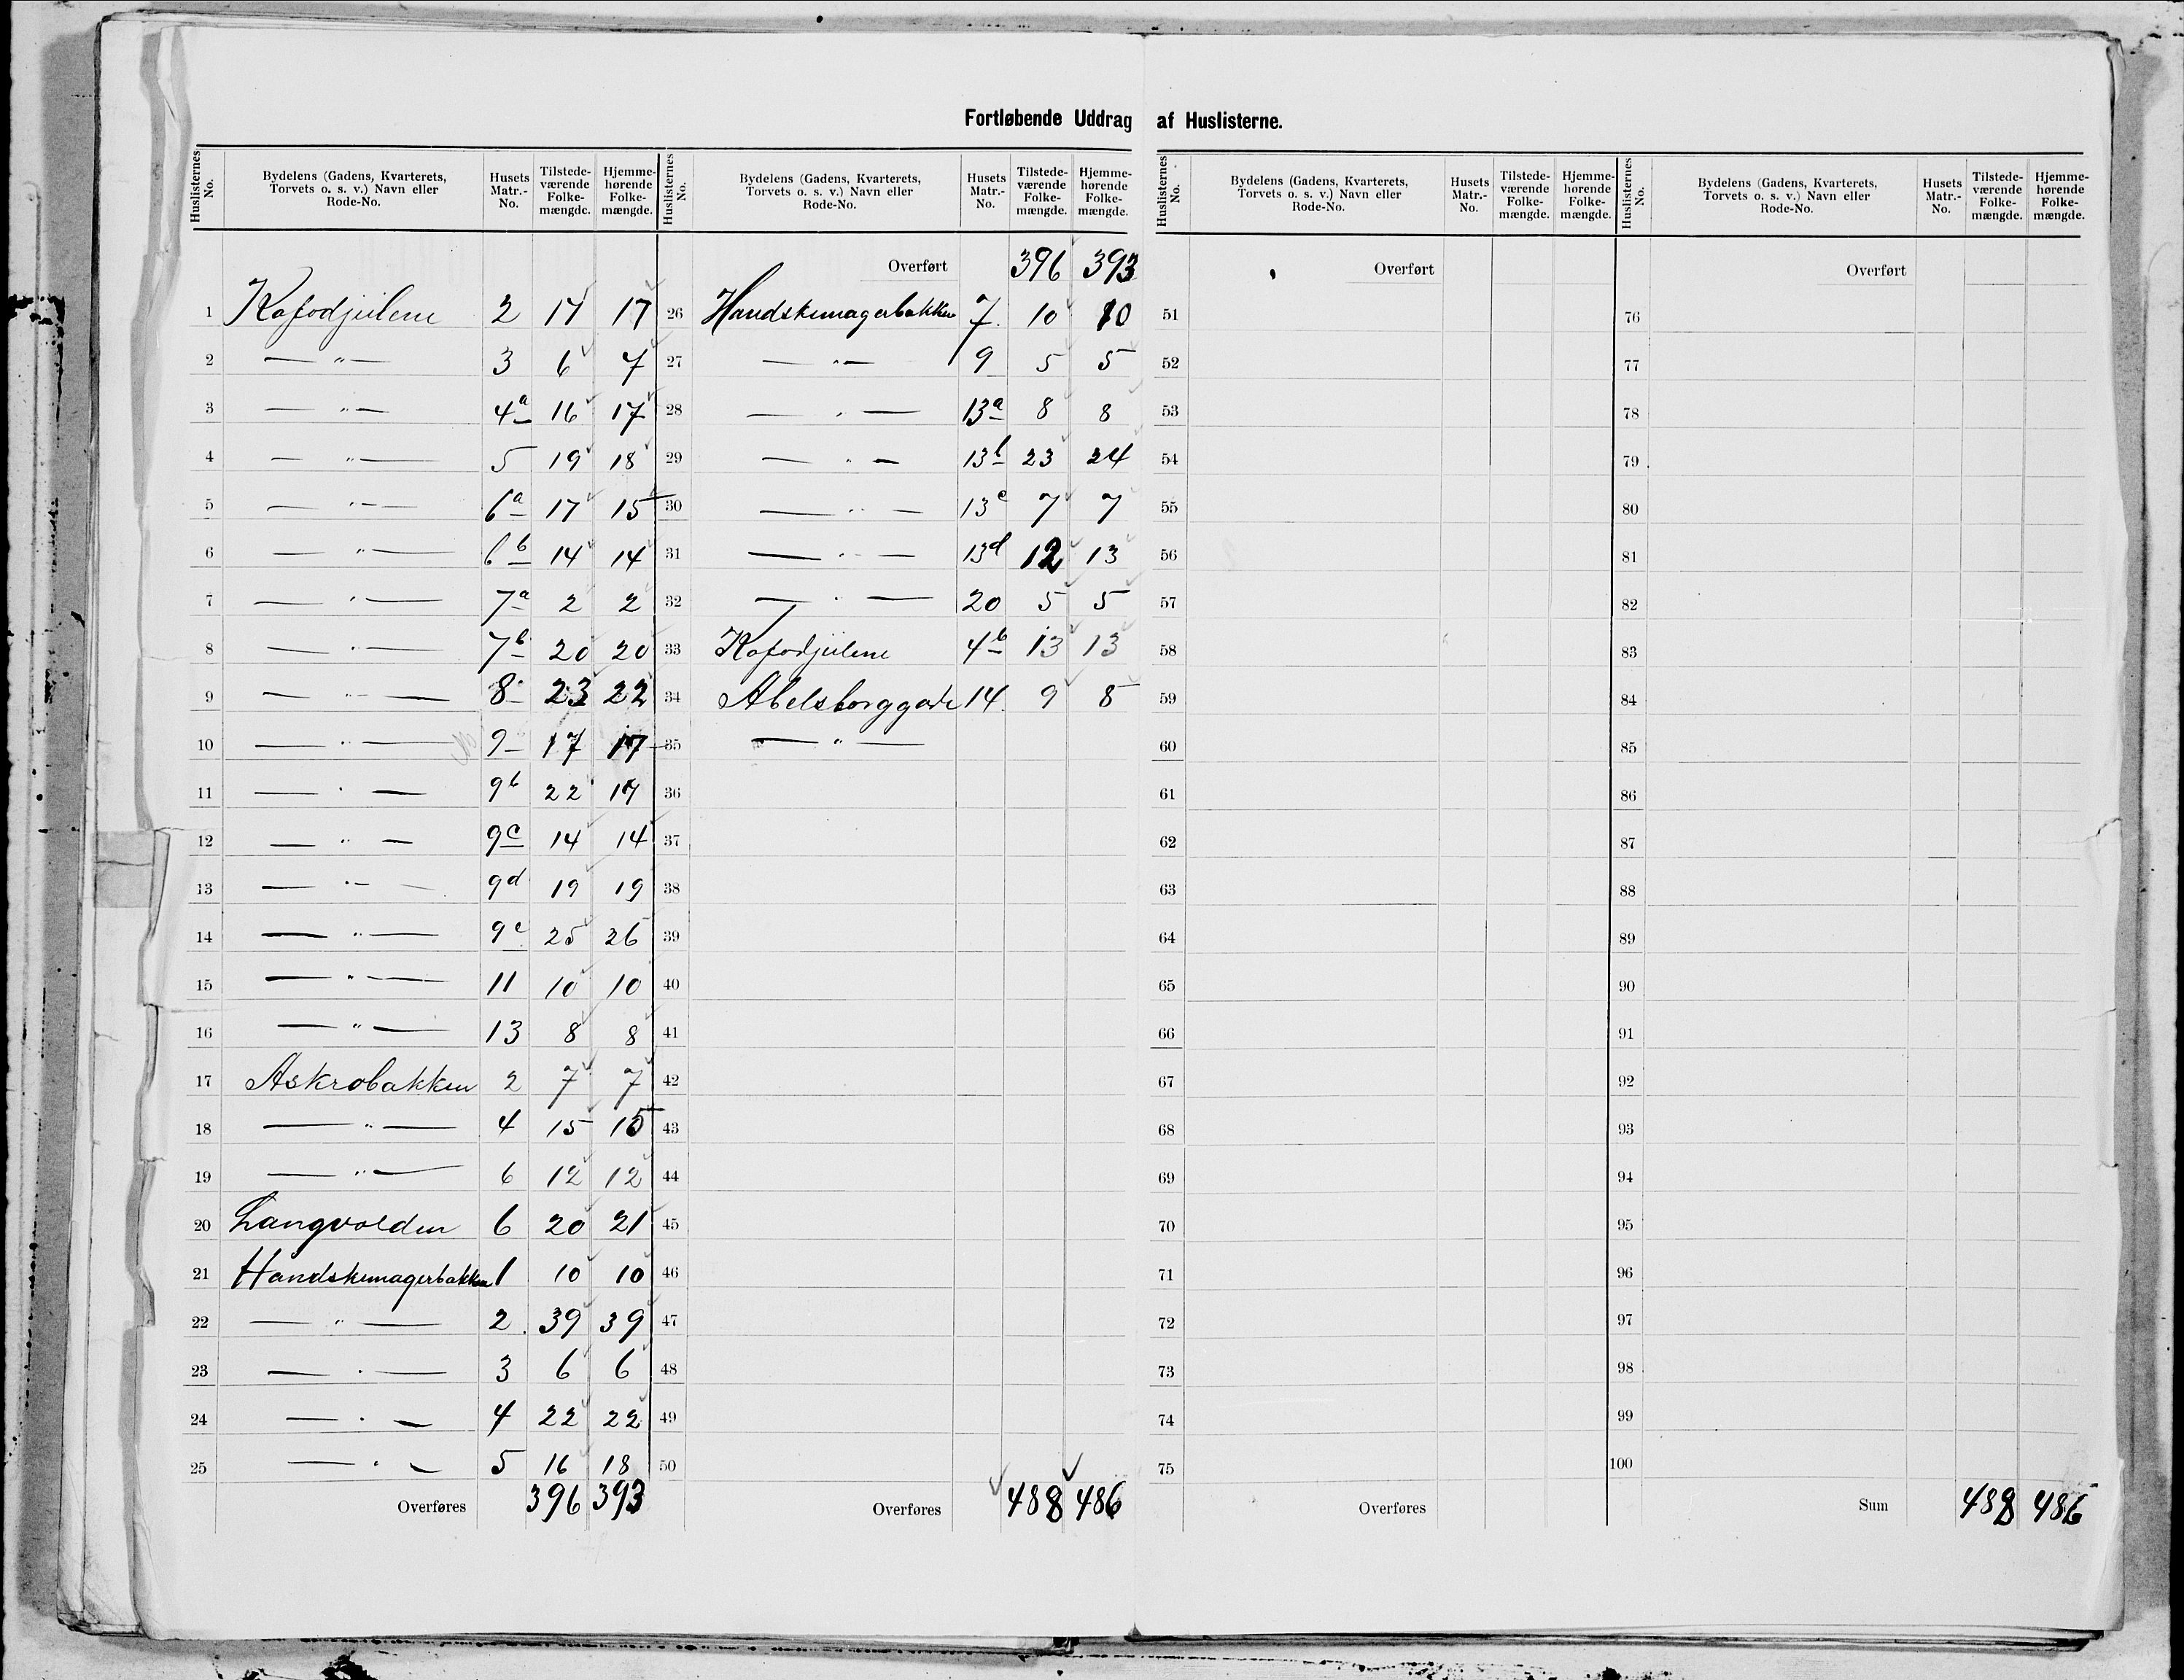 Fortløbende Uddrag af Huslisterne.
Huslisternes No. Bydelens (Gadens, Kvarterets, Torvets o. s. v.) Navn eller Rode-No. Husets Matr.-No. Tilstedeværende Folkemængde. Hjemmehørende Folkemængde.
1 Kafodjulene 2 17 17
2 — " — 3 6 7
3 — " — 4a 16 17
4 — " — 5 19 18
5 — " — 6a 17 15
6 — " — 6b 14 14
7 — " — 7a 2 2
8 — " — 7b 20 20
9 — " — 8 23 22
10 — " — 9 17 17
11 — " — 9b 22 17
12 — " — 9c 14 14
13 — " — 9d 19 19
14 — " — 9e 25 26
15 — " — 11 10 10
16 — " — 13 8 8
17 Askrobakken 2 7 7
18 — " — 4 15 15
19 — " — 6 12 12
20 Langvolden 6 20 21
21 Handskemagerbakken 1 10 10
22 — " — 2 39 39
23 — " — 3 6 6
24 — " — 4 22 22
25 — " — 5 16 18
Overføres 396 393
Huslisternes No. Bydelens (Gadens, Kvarterets, Torvets o. s. v.) Navn eller Rode-No. Husets Matr.-No. Tilstedeværende Folkemængde. Hjemmehørende Folkemængde.
Overført 396 393
26 Handskemagerbakken 7 10 10
27 — " — 9 5 5
28 — " — 13a 8 8
29 — " — 13b 23 24
30 — " — 13c 7 7
31 — " — 13d 12 13
32 — " — 20 5 5
33 Kafodjulene 4b 13 13
34 Abelsborggade 14 9 8
35 — " —
36
37
38
39
40
41
42
43
44
45
46
47
48
49
50
Overføres 488 486
Huslisternes No. Bydelens (Gadens, Kvarterets, Torvets o. s. v.) Navn eller Rode-No. Husets Matr.-No. Tilstedeværende Folkemængde. Hjemmehørende Folkemængde.
Overført
51
52
53
54
55
56
57
58
59
60
61
62
63
64
65
66
67
68
69
70
71
72
73
74
75
Overføres
Huslisternes No. Bydelens (Gadens, Kvarterets, Torvets o. s. v.) Navn eller Rode-No. Husets Matr.-No. Tilstedeværende Folkemængde. Hjemmehørende Folkemængde.
Overført
76
77
78
79
80
81
82
83
84
85
86
87
88
89
90
91
92
93
94
95
96
97
98
99
100
Sum 488 486